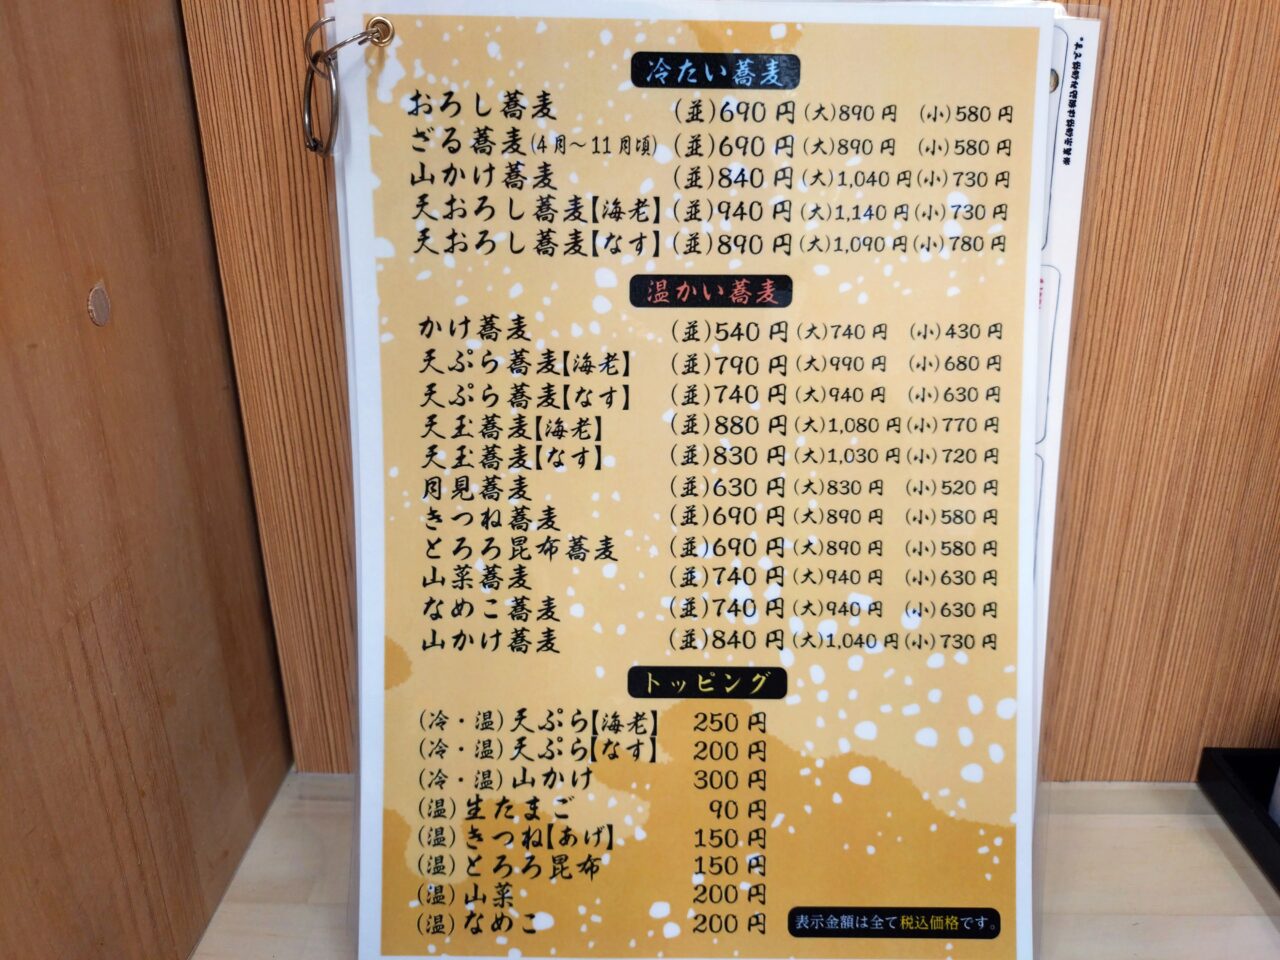 冷たい蕎麦
おろし蕎麦 (並)690円 (大)890円 (小)580円
ざる蕎麦(4月～11月頃) (並)690円 (大)890円 (小)580円
山かけ蕎麦 (並)840円 (大)1,040円 (小)730円
天おろし蕎麦【海老】 (並)940円 (大)1,140円 (小)730円
天おろし蕎麦【なす】 (並)890円 (大)1,090円 (小)780円
温かい蕎麦
かけ蕎麦 (並)540円 (大)740円 (小)430円
天ぷら蕎麦【海老】 (並)790円 (大)990円 (小)680円
天ぷら蕎麦【なす】 (並)740円 (大)940円 (小)630円
天玉蕎麦【海老】 (並)880円 (大)1,080円 (小)770円
天玉蕎麦【なす】 (並)830円 (大)1,030円 (小)720円
月見蕎麦 (並)630円 (大)830円 (小)520円
きつね蕎麦 (並)690円 (大)890円 (小)580円
とろろ昆布蕎麦 (並)690円 (大)890円 (小)580円
山菜蕎麦 (並)740円 (大)940円 (小)630円
なめこ蕎麦 (並)740円 (大)940円 (小)630円
山かけ蕎麦 (並)840円 (大)1,040円 (小)730円
トッピング
(冷・温)天ぷら【海老】 250円
(冷・温)天ぷら【なす】 200円
(冷・温)山かけ 300円
(温)生たまご 90円
(温)きつね【あげ】 150円
(温)とろろ昆布 150円
(温)山菜 200円
(温)なめこ 200円
表示金額は全て税込価格です。